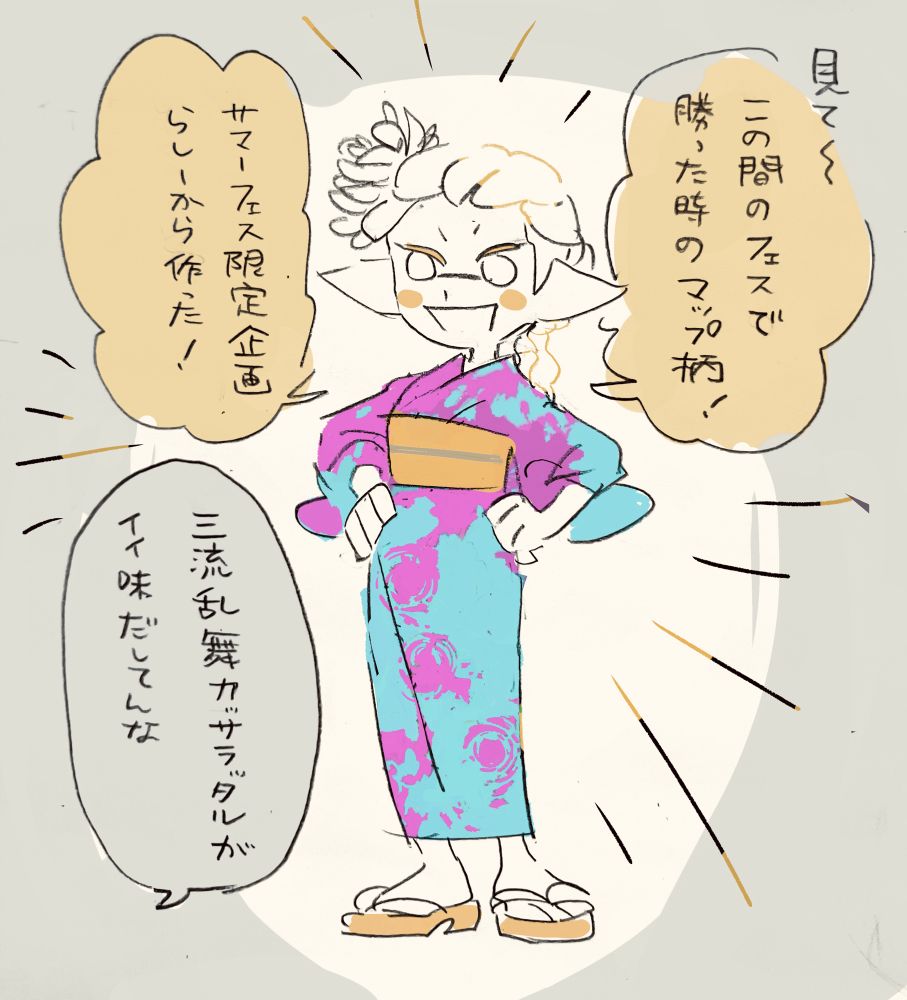 見て〜
この間のフェスで
勝った時のマップ柄！
サマーフェス限定企画
らしーから作った！
三流乱舞カ゛ッサラッタルが
イイ味だしてんな